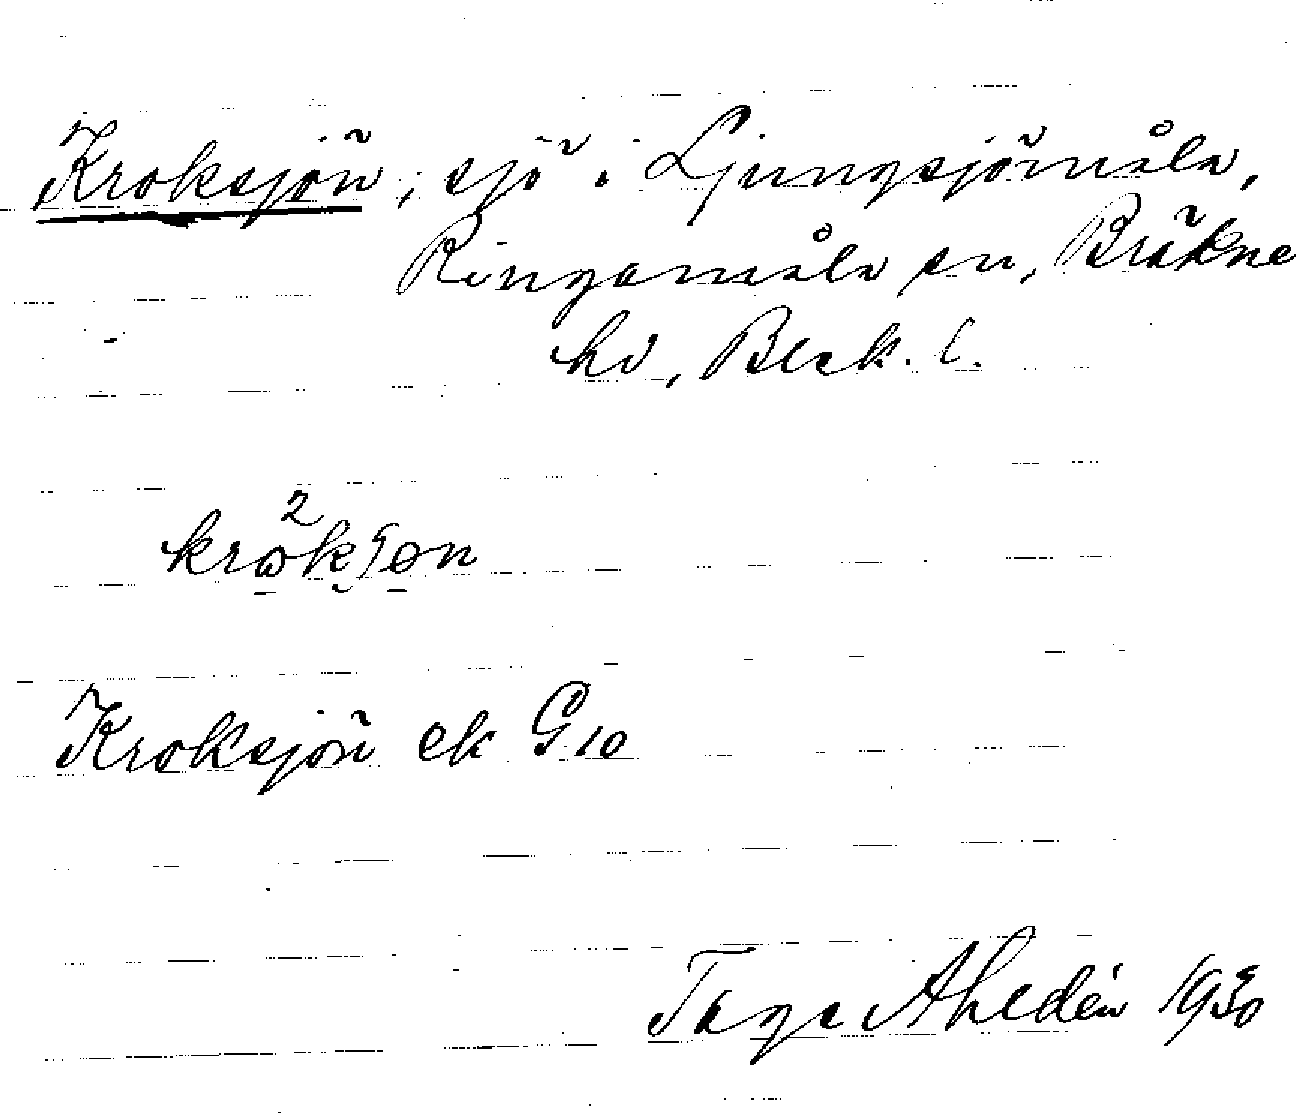 Kroksjön, sjö i Ljungsjömåla,
Ringamåla sn, Bräkne
hd, Blek. l.
2
krokʃøn
Kroksjön ek G10
Tage Ahldén 1930